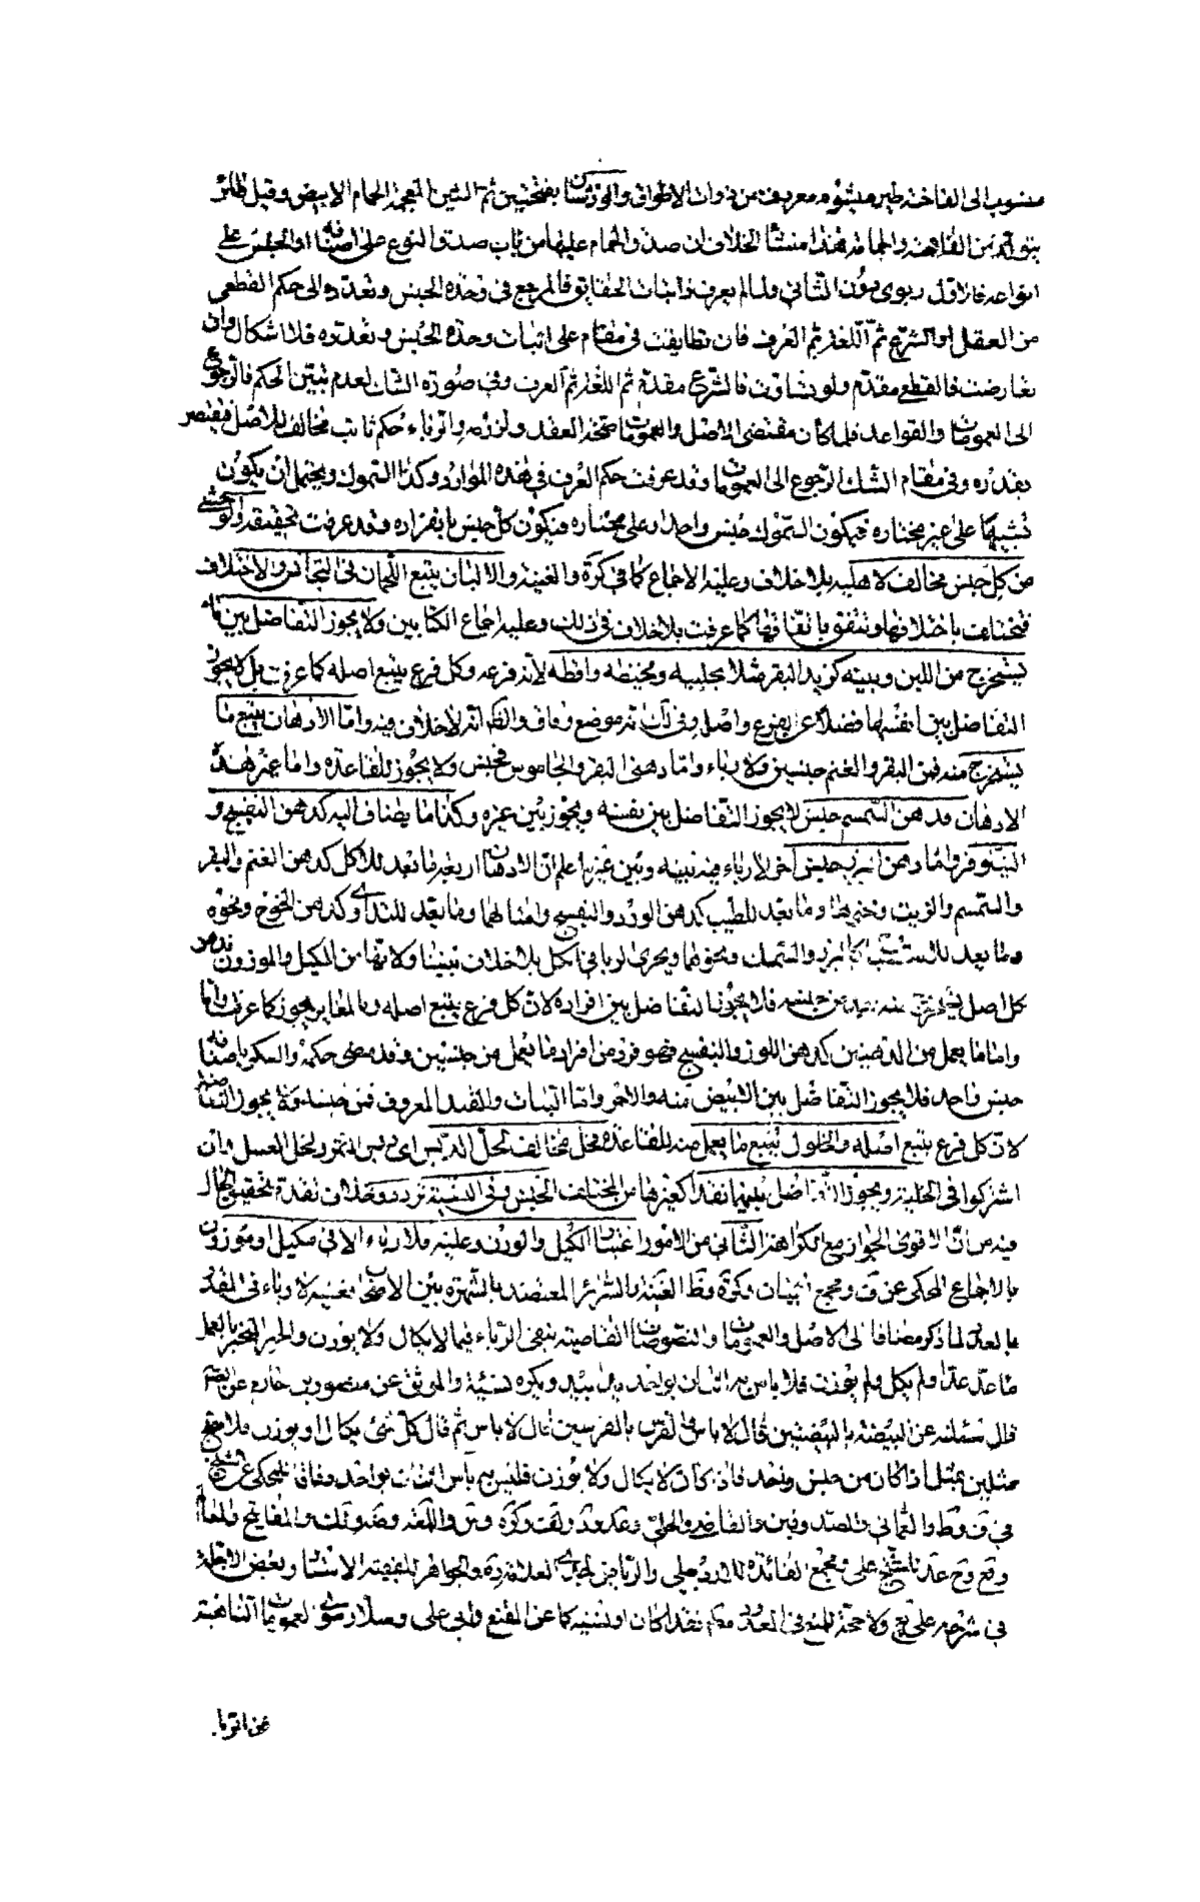 منسوب الى الفاختة طير مشئوم معروف من ذوات الاطواق والورشان بفتحتين ثم الشين المعجمة الحمام الابيض وقيل طائر
يتولد من الفاختة والحمامة فهذا منشأ الخلاف ان صدق الحمام عليها من باب صدق النوع على اصنافه او الجنس على
انواعه فالاول ربوى دون الثانى ولما لم يعرف ذاتيات الحقايق فالمرجع فى وحدة الجنس وتعدده الى حكم القطعى
من العقل او الشرع ثم اللغة ثم العرف فان تطابقت فى مقام على اثبات وحدة الجنس وتعدده فلا اشكال وان
تعارضت فالقطعى مقدم ولو تساوت فالشرع مقدم ثم اللغة ثم العرف وفى صورة الشك لعدم تبين الحكم فالرجوع
الى العمومات والقواعد فلما كان مقتضى الاصل والعمومات صحة العقد ولزومه والرباء حكم ثابت مخالف للاصل فيقتصر
بقدره وفى مقام الشك الرجوع الى العمومات وقد عرفت حكم العرف فى هذه الموارد وكذا السموك ويحتمل ان يكون
تشبيها على غير مختاره فيكون السموك جنس واحد او على مختاره فيكون كل جنس بانفراده وقد عرفت تحقيقه والوحشى
من كل جنس مخالف لاهليه بلا خلاف وعليه الاجماع كما فى كرة والغنية والالبان يتبع اللحمان فى التجانس والاختلاف
فتختلف باختلافها وتتفق باتفاقها كما عرفت بلا خلاف فى ذلك وعليه اجماع الكتابين ولا يجوز التفاضل بين ما
يستخرج من اللبن وبينه كزبد البقر مثلا بحليبه ومخيضه واقطه لانه فرعه وكل فرع يتبع اصله كما عرفت بل لا يجوز
التفاضل بين انفسها فضلا عن فرع واصل وفى كرة انه موضع وفاق والظاهر انه لا خلاف فيه واما الادهان يتبع ما
يستخرج منه فمن البقر والغنم جنسين ولا رباء واما دهنى البقر والجاموس فجنس ولا يجوز للقاعدة واما غير هذه
الادهان فدهن السمسم جنس لا يجوز التفاضل بين نفسه ويجوز بين غيره وكذا ما يضاف اليه كدهن البنفسج و
النيلوفر واما دهن البزر جنس اخر لا رباء فيه بينه وبين غيره اعلم ان الادهان اربعة ما تعد للاكل كدهن الغنم والبقر
والسمسم والزيت ونحوها وما يعد للطيب كدهن الورد والبنفسج وامثالهما وما يعد للتداوى كدهن الخروع ونحوه
وما يعد كالبزر والسمك ونحوهما ويجرى الربا فى الكل بلا خلاف بيننا ولانها من المكيل والموزون فدهن
كل اصل جنسه فلا يجوز التفاضل بين افراده لان كل فرع يتبع اصله وبالمغاير يجوز كما عرفت واما
واما ما يعمل من الدهنين كدهن اللوز والبنفسج فهو فرد من افراد ما يعمل من جنسين وقد مضى حكمه والسكر باصنافه
جنس واحد فلا يجوز التفاضل بين الابيض منه والاحمر واما النبات والقند المعروف فمن جنسه فلا يجوز التفاضل
لان كل فرع يتبع اصله والخلول يتبع ما يعمل منه للقاعدة فخل مخالف لخل الدبس اى دبس التمر ولخل العسل وان
اشتركوا فى الخلية ويجوز التفاضل بينهما نقدا كغيرها من المختلف الجنس وفى النسية تردد وخلاف نقدة تحقيق الحال
فيه من ان الاقوى الجواز مع الكراهة الثانى من الامور اعتبار الكيل والوزن وعليه فلا رباء الا فى مكيل او موزون
بالاجماع المحكى عن ف ومجمع البيان وكرة وظ الغنية والسرائر المعتضد بالشهرة بين الاصحاب نسية لا رباء فى المعدود
لما ذكر مضافا الى الاصل والعمومات والنصوص القاضية بنفى الرباء فيما لا يكال ولا يوزن والخبر المنجبر بالعمل
ما عد عدا ولم يكل ولم يوزن فلا باس به اثنان بواحد يدا بيد ويكره نسيئة والموثق عن منصور بن حازم عن الصادق
قال سئلته عن البيضة بالبيضتين قال لا باس والفرس بالفرسين قال لا باس ثم قال كل شئ يكال او يوزن فلا يصلح
مثلين بمثل اذا كان من جنس واحد فاذا كان لا يكال ولا يوزن فليس به باس اثنان بواحد وفاقا للمحكى عن الشيخ
فى ف وط والعمانى والصدوقين والقاضى والحلى وعد ولف وكرة وس واللمعة وضة ولك والمفاتيح
وقع وح عد للشيخ على ومجمع الفائدة للاردبيلى والرياض والجواهر للفقيه الاستاد وبعض الاجلة
فى شرحه على فع ولا حجة للمنع فى المعدود نقدا كان او نسيئة كما عن المقنع وابى على وسلار سوى العمومات الناهية
عن الربا